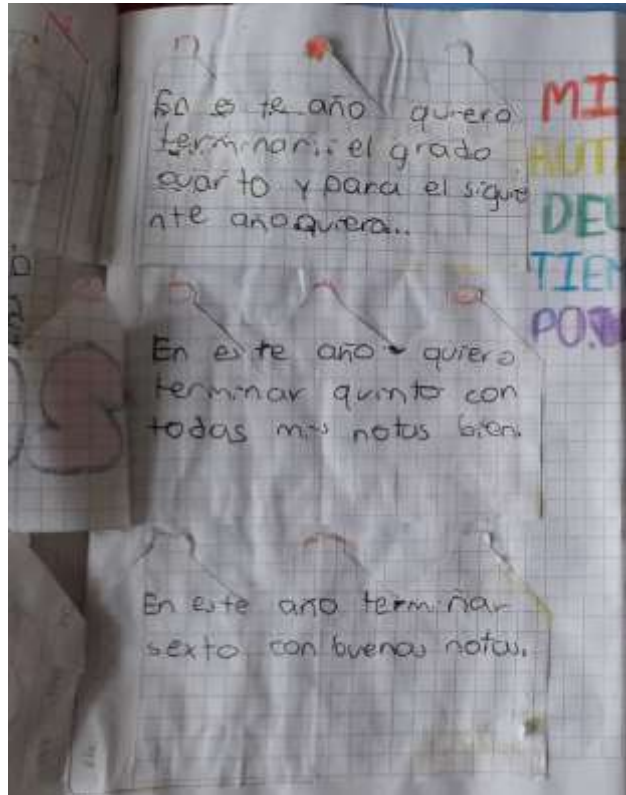 En es te año quiero
terminar.. el grado
cuarto y para el siguie
nte año quiero...
MI
AUT
DEL
TIEM
PO.
En es te año quiero
terminar quinto con
todas mis notas bien.
En este año terminar
sexto con buenas notas.